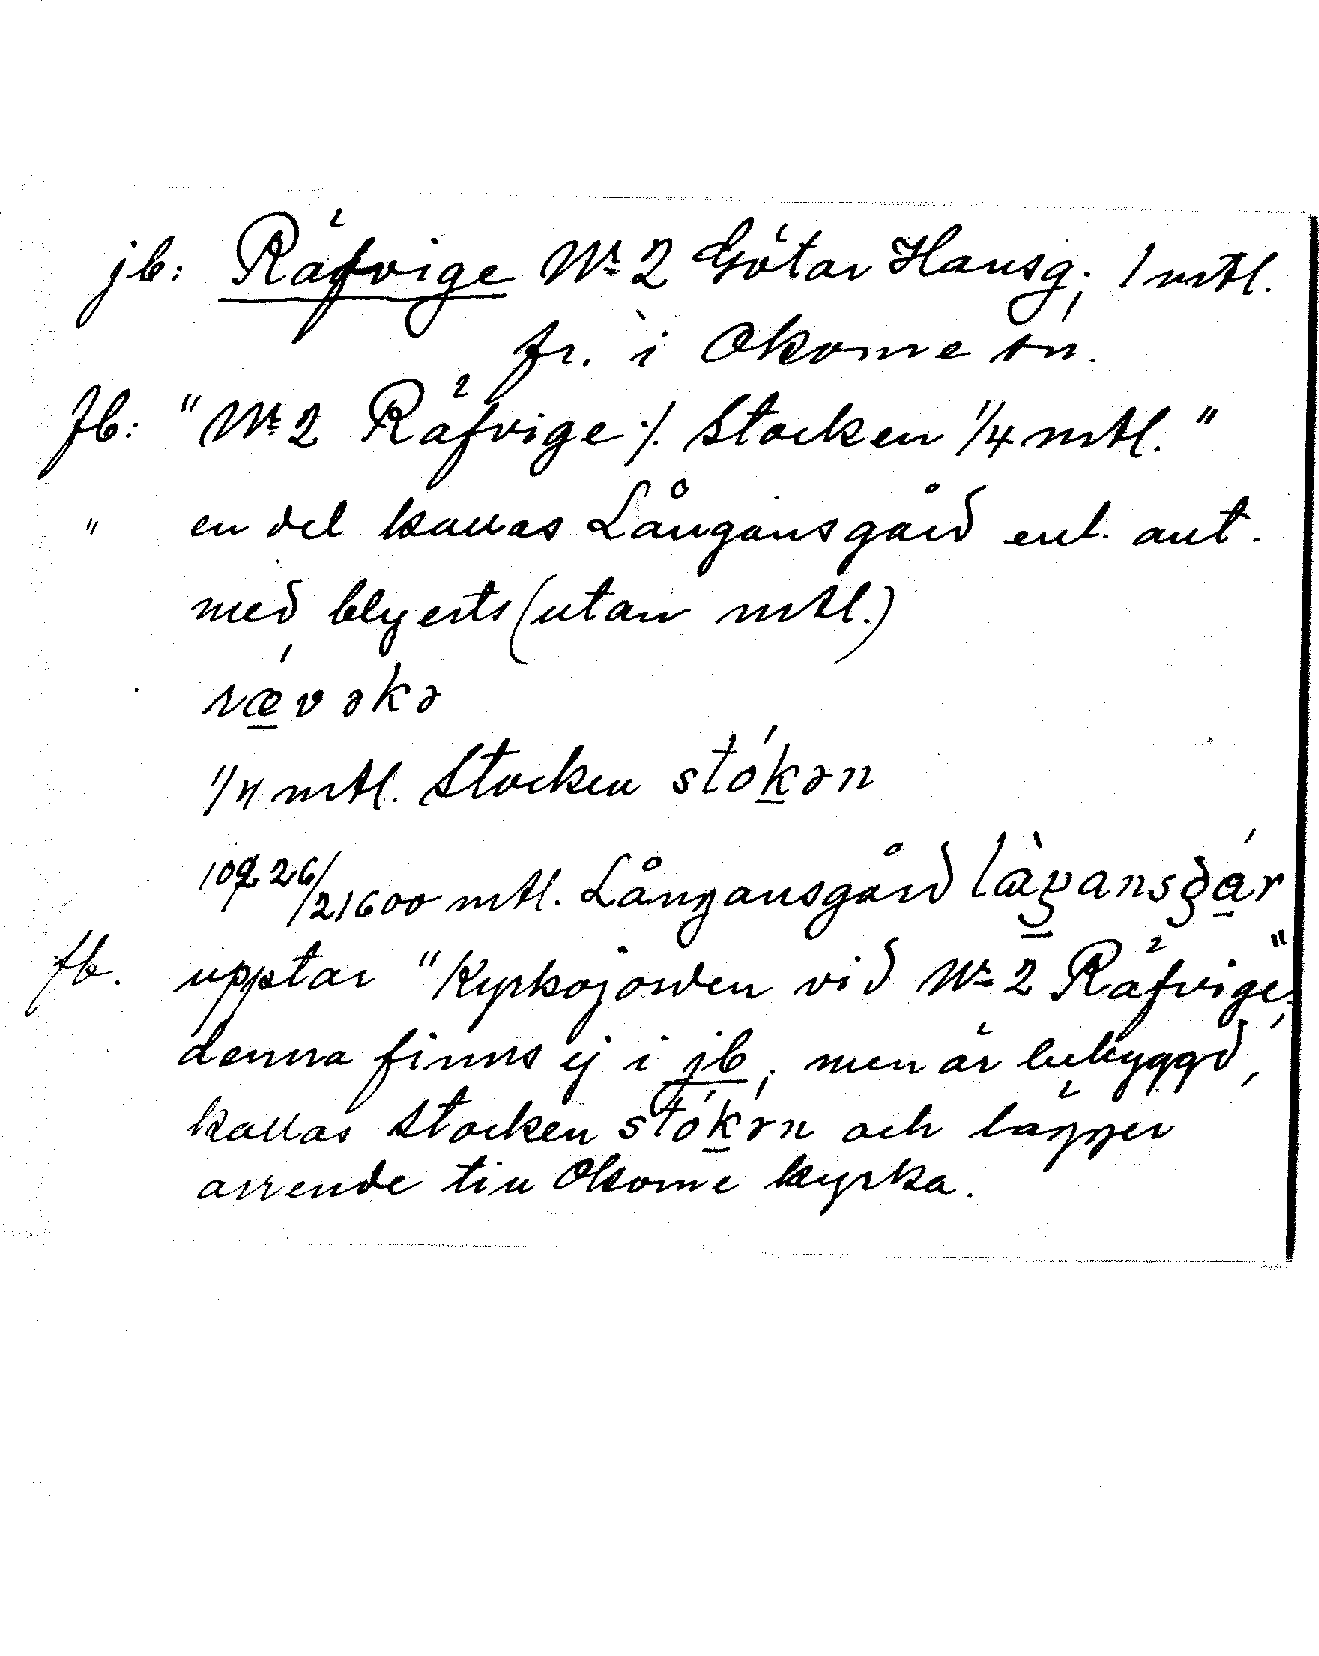 jb: Räfvige № 2 Götar Hansg; 1 mtl.
fr. i Okome sn.
fb: "№ 2 Räfvige ·/. Stocken 1/4 mtl."
" en del kallas Långansgård enl. ant.
med blyerts (utan mtl.)
rǽvəkə
1/4 mtl. Stocken stók̲ən
/21600 mtl. Långansgård
fb. upptar "Kyrkojorden vid № 2 Räfvige",
denna finns ej i jb, men är bebyggd,
kallas Stocken stók̲ən och lägger
arrende till Okome kyrka.